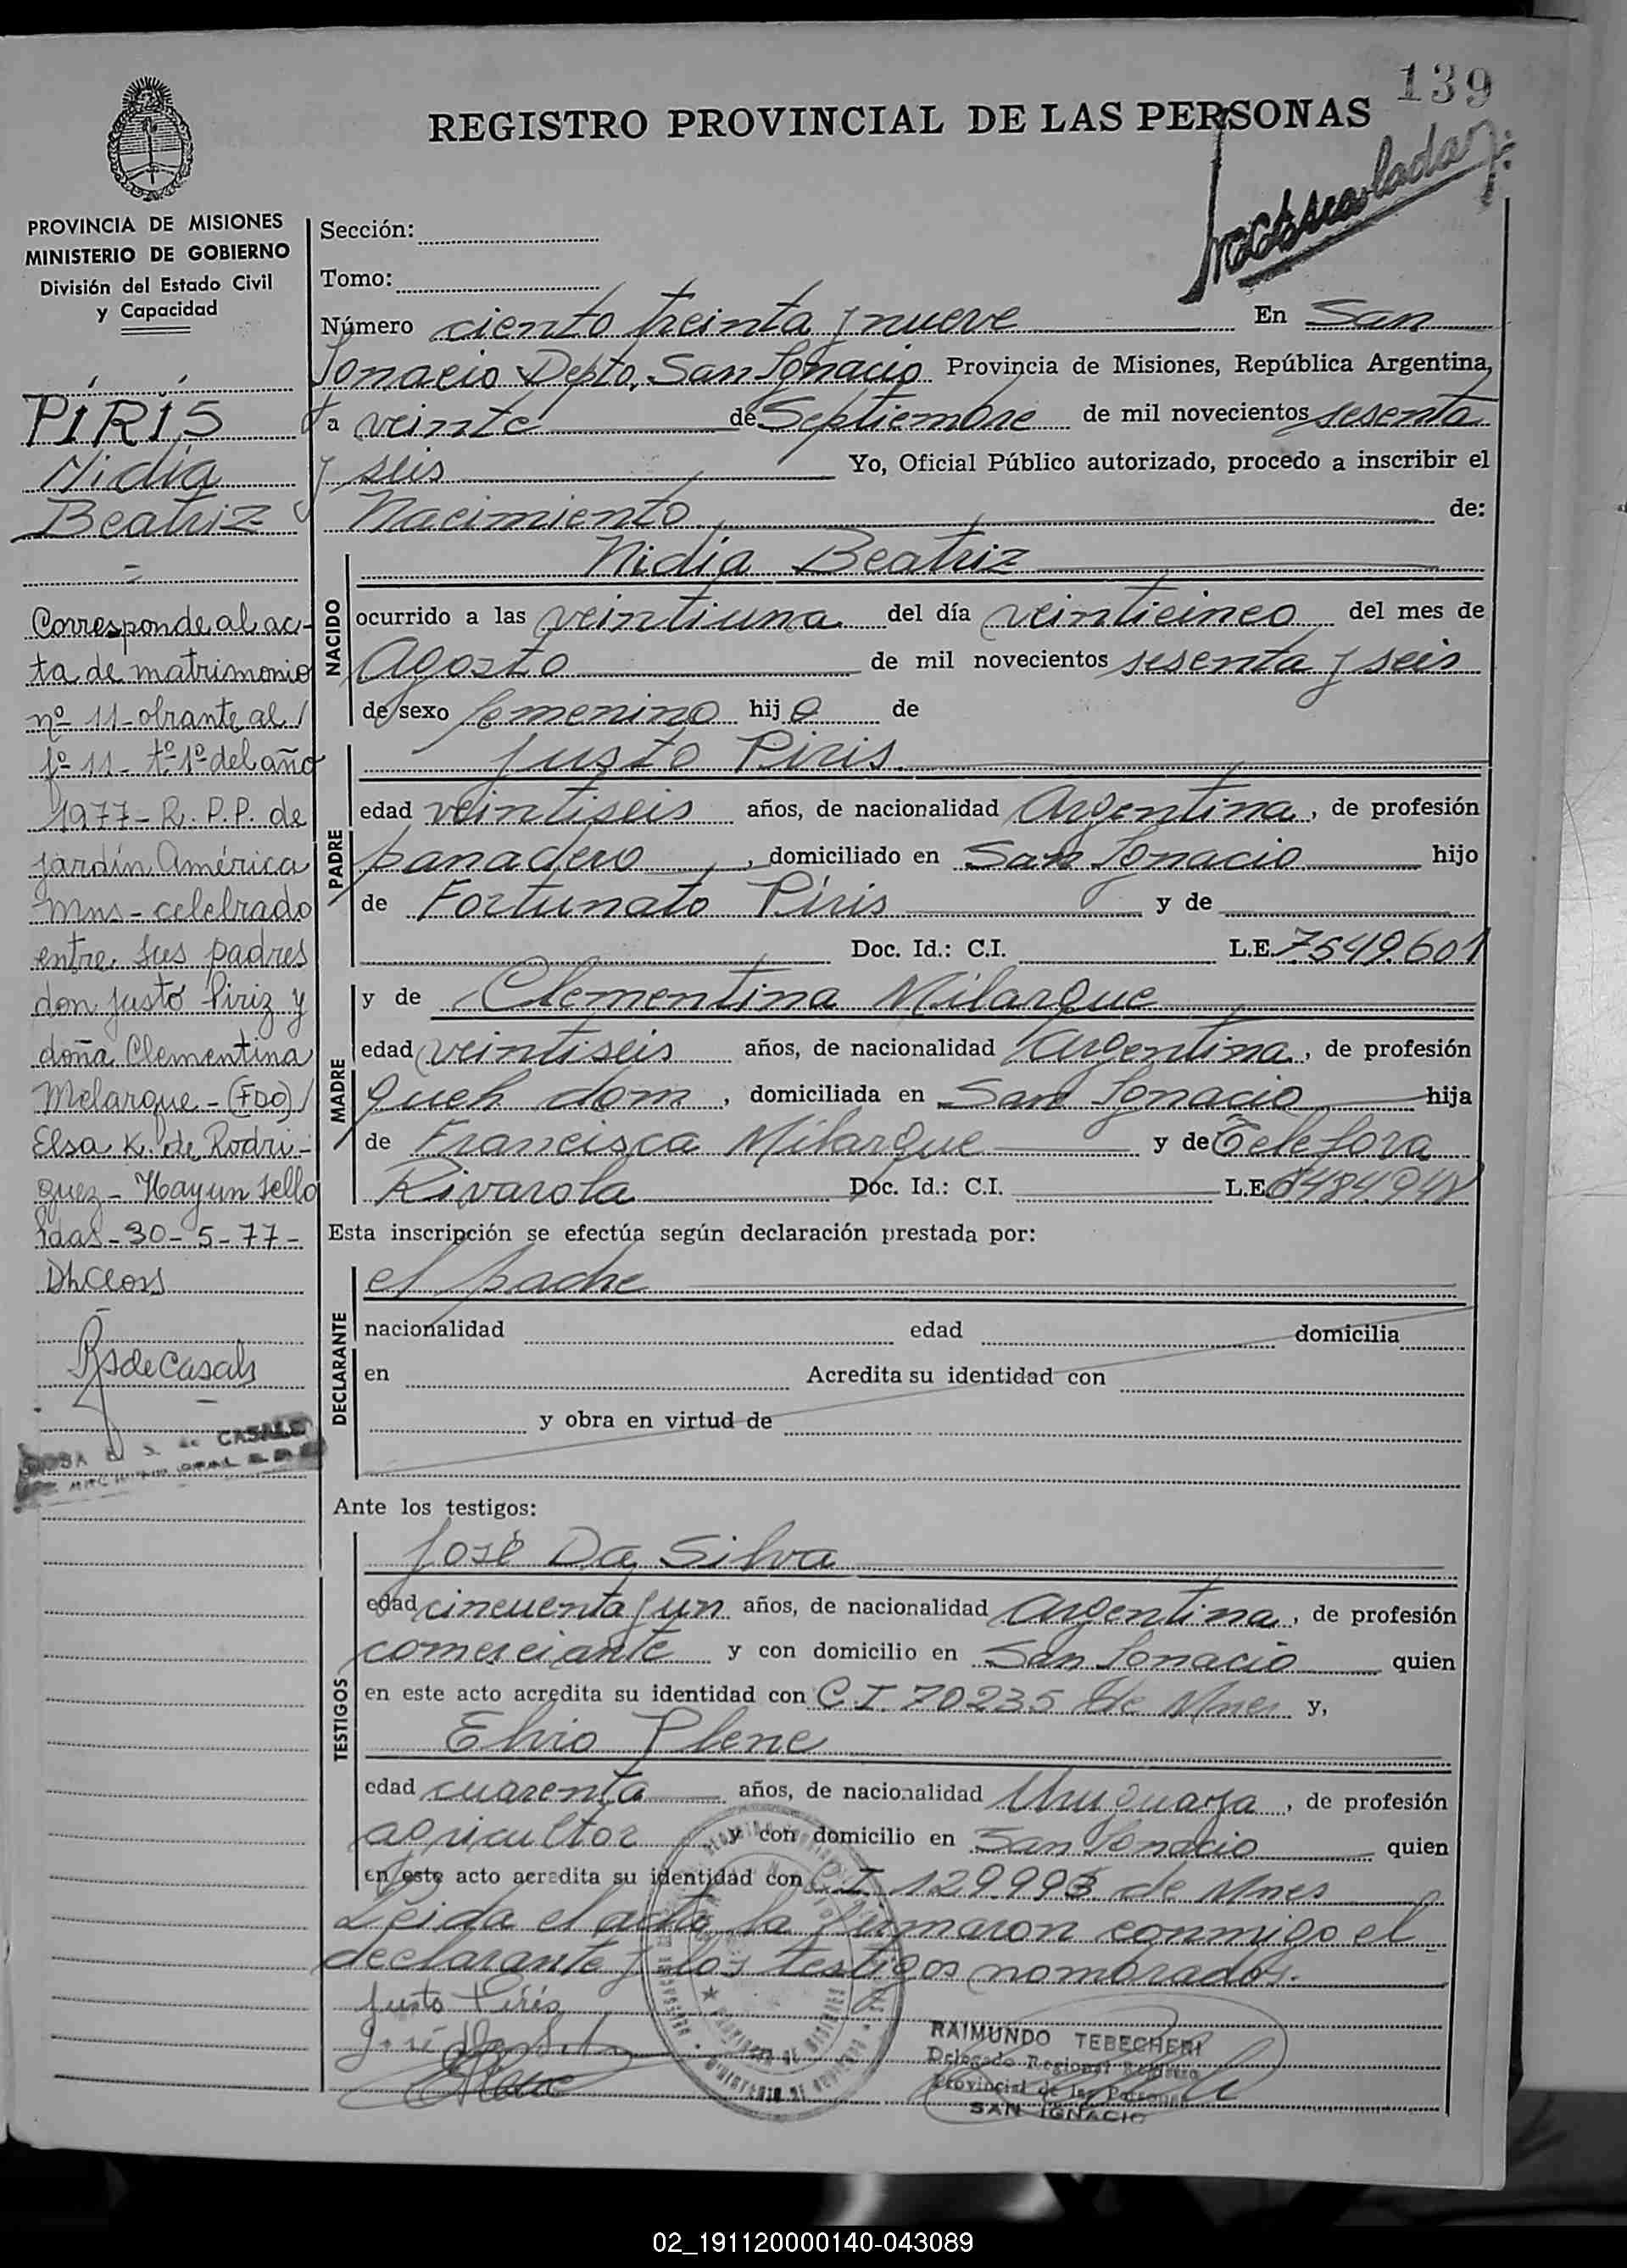 139
REGISTRO PROVINCIAL DE LAS PERSONAS
PROVINCIA DE MISIONES
MINISTERIO DE GOBIERNO
División del Estado Civil
y Capacidad
PIRIS
Nidia
Beatriz
Corresponde al ac-
ta de matrimonio
nº 11 - obrante al
fº 11 - tº 1º del año
1977 - R. P. P. de
Jardín América
Mns - celebrado
entre sus padres
don Justo Piriz y
doña Clementina
Melarque - (Fdo)
Elsa K. de Rodri-
guez - Hay un sello
Pdas - 30 - 5 - 77 -
Sección:
Tomo:
Número ciento treinta y nueve En San
Ignacio Depto. San Ignacio Provincia de Misiones, República Argentina,
a veinte de Septiembre de mil novecientos sesenta
y seis Yo, Oficial Público autorizado, procedo a inscribir el
Nacimiento de:
NACIDO
Nidia Beatriz
ocurrido a las veintiuna del día veinticinco del mes de
Agosto de mil novecientos sesenta y seis
de sexo femenino hij a de
PADRE
Justo Piris
edad veintiseis años, de nacionalidad Argentina, de profesión
panadero, domiciliado en San Ignacio hijo
de Fortunato Piris y de
Doc. Id.: C.I. L.E. 7549.601
MADRE
y de Clementina Milarque
edad veintiseis años, de nacionalidad Argentina, de profesión
queh dom, domiciliada en San Ignacio hija
de Francisca Milarque y de Telefora
Rivarola Doc. Id.: C.I. L.E.
Esta inscripción se efectúa según declaración prestada por:
DECLARANTE
el padre
nacionalidad edad domicilia
en Acredita su identidad con
y obra en virtud de
Ante los testigos:
TESTIGOS
José Da Silva
edad cincuenta y un años, de nacionalidad Argentina, de profesión
comerciante y con domicilio en San Ignacio quien
en este acto acredita su identidad con C.I. 70235 de Mnes y,
Elvio Plene
edad cuarenta años, de nacionalidad Uruguaya, de profesión
agricultor y con domicilio en San Ignacio quien
en este acto acredita su identidad con C.I. 129.993 de Mnes
Leida el acta la firmaron conmigo el
declarante y los testigos nombrados.
Justo Piris
RAIMUNDO TEBECHERI
Delegado Regional Registro
Provincial de las Personas
SAN IGNACIO
02_191120000140-043089